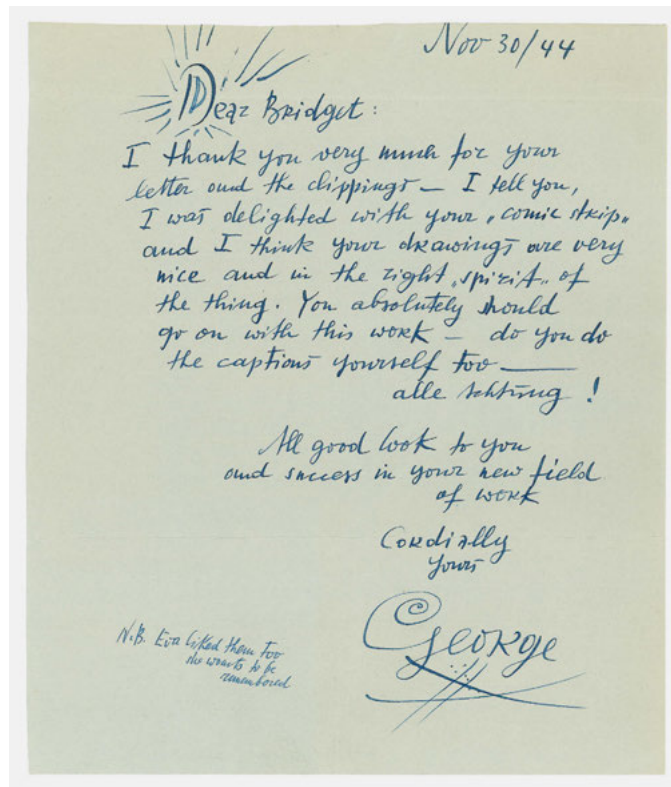 Nov 30/44
Dear Bridget:
I thank you very much for your
letter and the clippings — I tell you,
I was delighted with your „comic strip„
and I think your drawings are very
nice and in the right „spirit„ of
the thing. You absolutely should
go on with this work — do you do
the captions yourself too —
alle Achtung!
All good look to you
and success in your new field
of work
Cordially
Yours
George
N.B. Eva liked them too
she wants to be
remembered